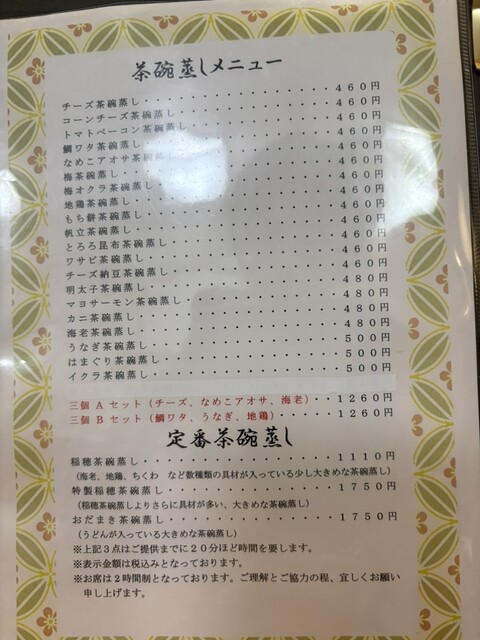 茶碗蒸しメニュー
チーズ茶碗蒸し・・・・・・・・・・・・・・・・460円
コーンチーズ茶碗蒸し・・・・・・・・・・・・・460円
トマトベーコン茶碗蒸し・・・・・・・・・・・・460円
鯛ワタ茶碗蒸し・・・・・・・・・・・・・・・・460円
なめこアオサ茶碗蒸し・・・・・・・・・・・・・460円
梅茶碗蒸し・・・・・・・・・・・・・・・・・・460円
梅オクラ茶碗蒸し・・・・・・・・・・・・・・・460円
地鶏茶碗蒸し・・・・・・・・・・・・・・・・・460円
もち餅茶碗蒸し・・・・・・・・・・・・・・・・460円
帆立茶碗蒸し・・・・・・・・・・・・・・・・・460円
とろろ昆布茶碗蒸し・・・・・・・・・・・・・・460円
ワサビ茶碗蒸し・・・・・・・・・・・・・・・・460円
チーズ納豆茶碗蒸し・・・・・・・・・・・・・・460円
明太子茶碗蒸し・・・・・・・・・・・・・・・・480円
マヨサーモン茶碗蒸し・・・・・・・・・・・・・480円
カニ茶碗蒸し・・・・・・・・・・・・・・・・・480円
海老茶碗蒸し・・・・・・・・・・・・・・・・・480円
うなぎ茶碗蒸し・・・・・・・・・・・・・・・・500円
はまぐり茶碗蒸し・・・・・・・・・・・・・・・500円
イクラ茶碗蒸し・・・・・・・・・・・・・・・・500円
三個Aセット（チーズ、なめこアオサ、海老）・・1260円
三個Bセット（鯛ワタ、うなぎ、地鶏）・・・・・1260円
定番茶碗蒸し
稲穂茶碗蒸し・・・・・・・・・・・・・・・・1110円
（海老、地鶏、ちくわ　など数種類の具材が入っている少し大きめな茶碗蒸し）
特製稲穂茶碗蒸し・・・・・・・・・・・・・・1750円
（稲穂茶碗蒸しよりさらに具材が多い、大きめな茶碗蒸し）
おだまき茶碗蒸し・・・・・・・・・・・・・・1750円
（うどんが入っている大きめな茶碗蒸し）
※上記3点はご提供までに20分ほど時間を要します。
※表示金額は税込みとなっております。
※お席は2時間制となっております。ご理解とご協力の程、宜しくお願い
申し上げます。